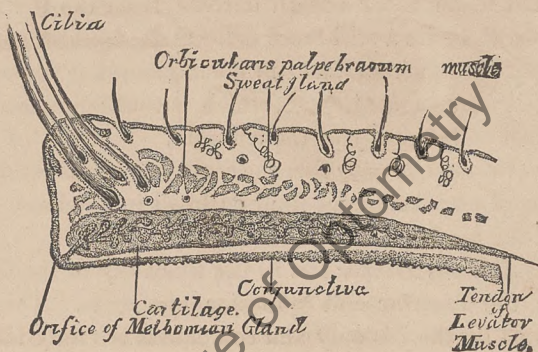 Cilia
Orbicularis palpebrarum muscle
Sweat gland
Conjunctiva
Cartilage.
Orifice of Meibomian Gland
Tendon
of
Levator
Muscle.
of Optometry